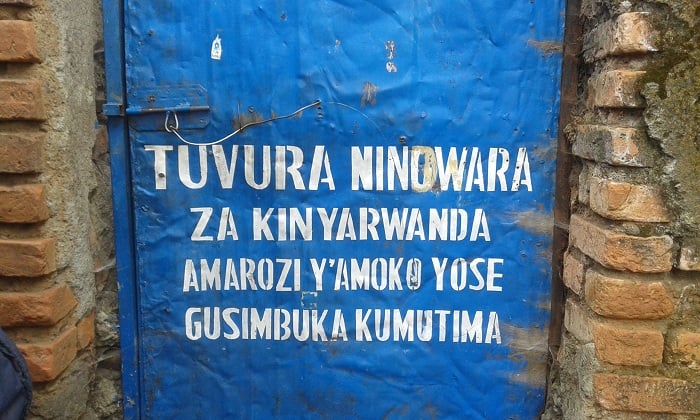 TUVURA NINDWARA
ZA KINYARWANDA
AMAROZI Y'AMOKO YOSE
GUSIMBUKA KUMUTIMA